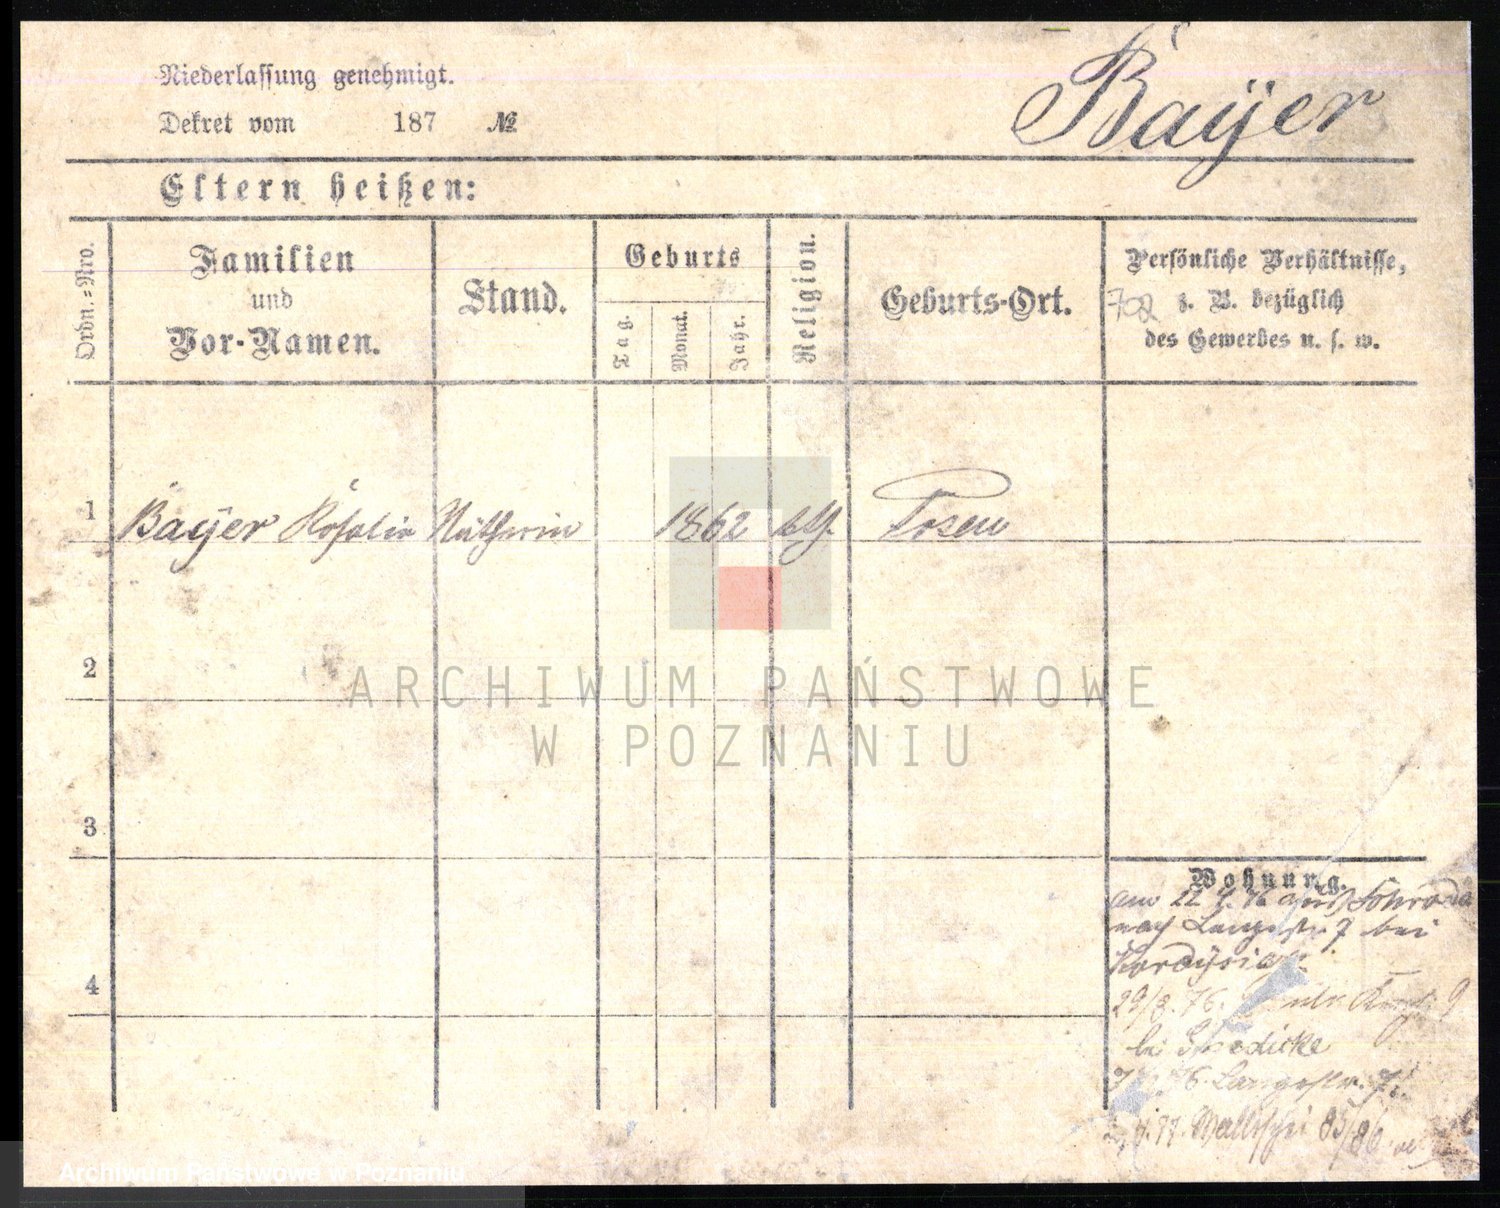 Niederlassung genehmigt.
Dekret vom 187 №
Bayer
Eltern heißen:
Ordn.-Nro.
Familien
und
Vor-Namen.
Stand.
Geburts
Tag.
Monat.
Jahr.
Religion.
Geburts-Ort.
Persönliche Verhältnisse,
702 z. B. bezüglich
des Gewerbes u. s. w.
1 Bayer Rosalie Nätherin 1862 kth. Posen
2
ARCHIWUM PAŃSTWOWE
W POZNANIU
3
Wohnung.
am 22 4. 76 Schroda
nach Langestr. 7 bei
29/8. 76. 9
bei
76. Langestr. 7.
4
77. Wallischei 85/86
Archiwum Państwowe w Poznaniu